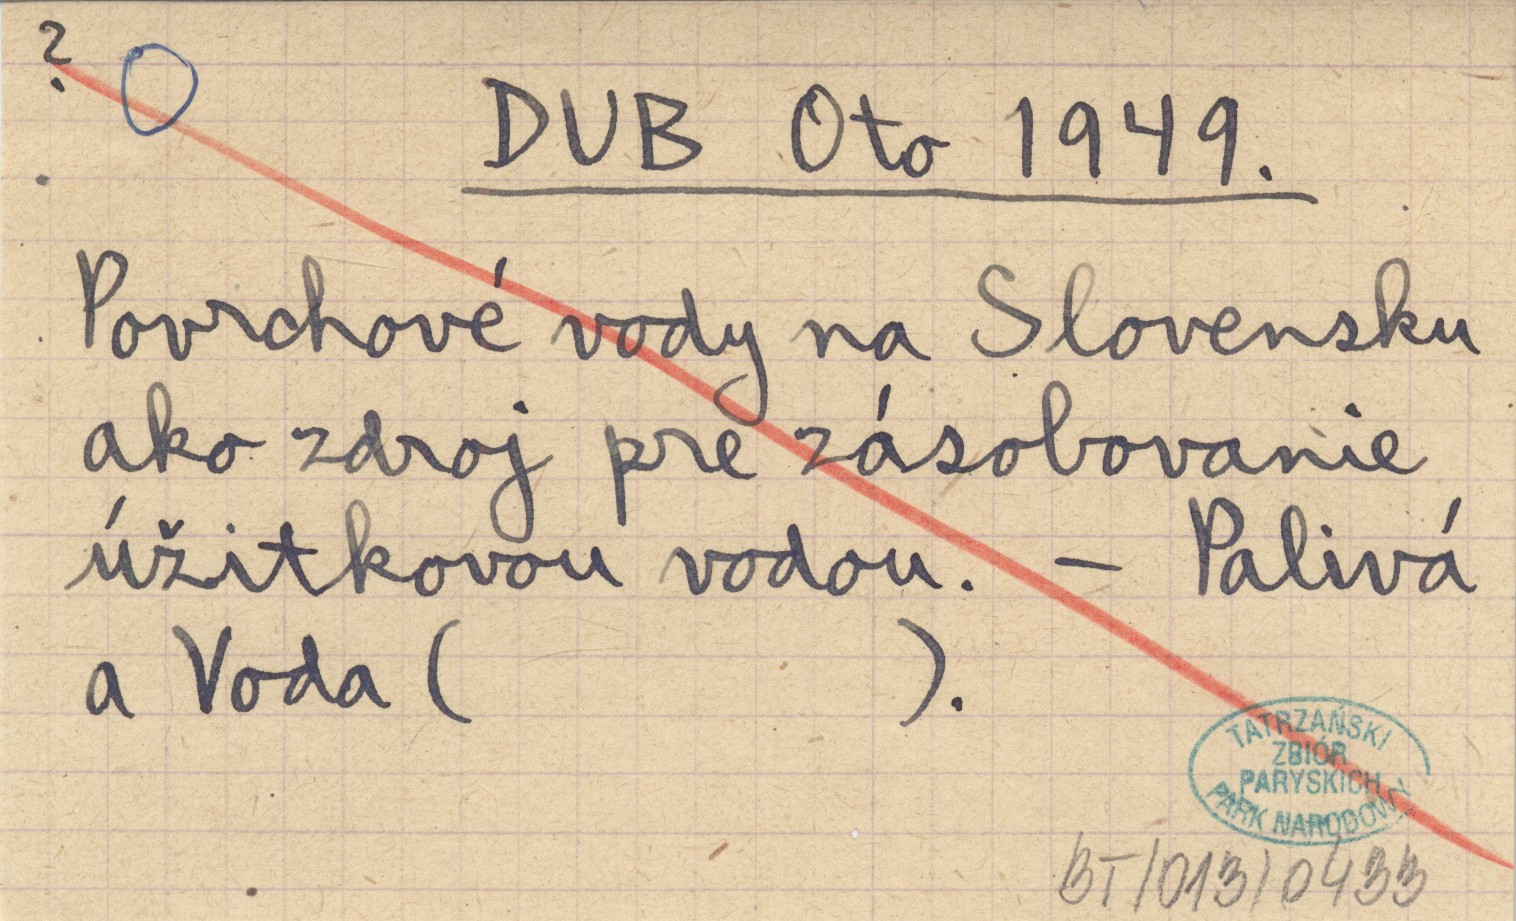 ?
DUB Oto 1949.
Povrchové vody na Slovensku
ako zdroj pre zásobovanie
úžitkovou vodou. – Palivá
a Voda ( ).
TATRZAŃSKI
ZBIÓR
PARYSKICH
PARK NARODOWY
BT/013/0433